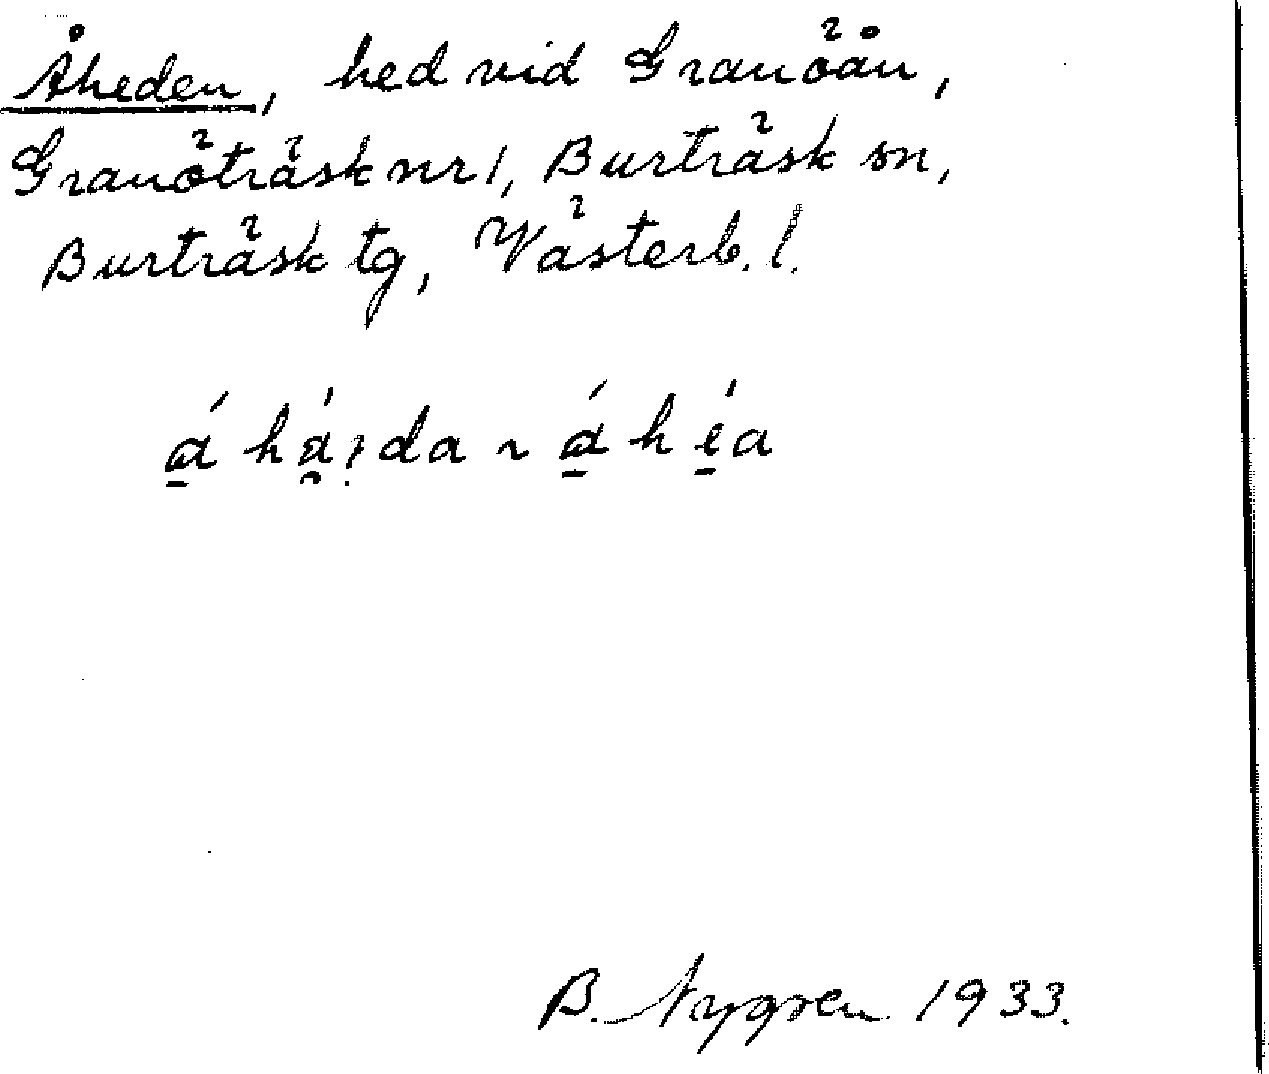 Åheden, hed vid Granöån,
Granöträsk nr 1, Burträsk sn,
Burträsk tg, Västerb. l.
B. Nygren 1933.